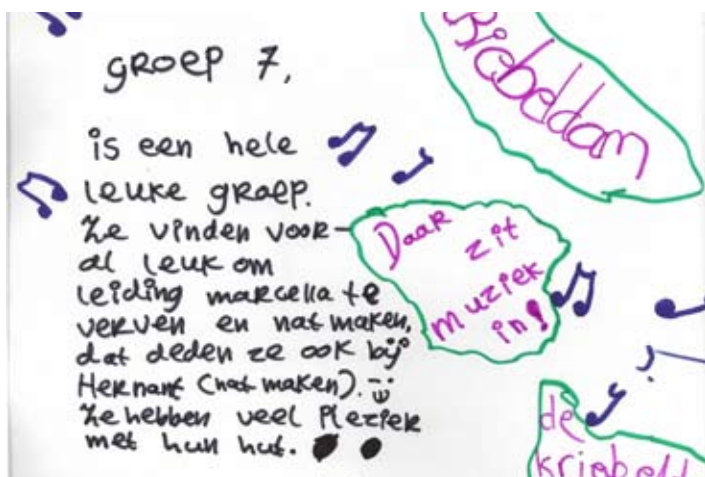 groep 7,
is een hele
leuke groep.
Ze vinden voor-
al leuk om
leiding marcella te
verven en nat maken,
dat deden ze ook bij
Hernant (nat maken). :)
Ze hebben veel Pleziek
met hun hut.
Daar
zit
muziek
in!
de